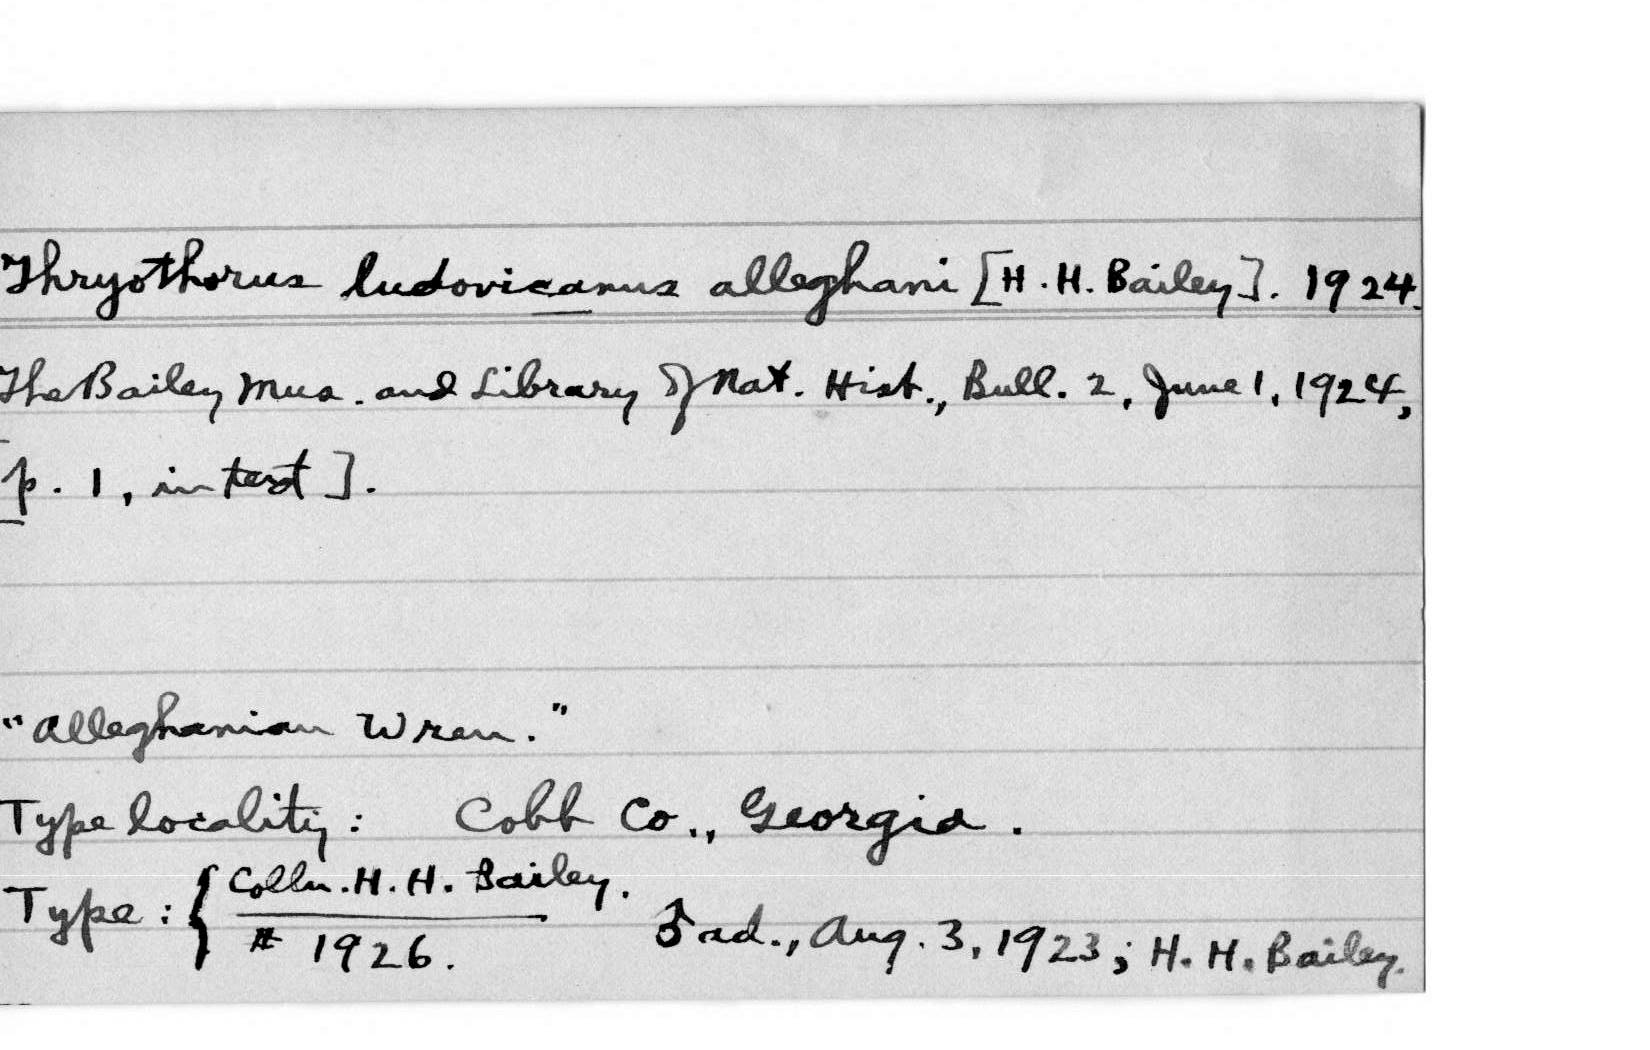 Thryothorus ludovicanus alleghani [H. H. Bailey]. 1924.
The Bailey Mus. and Library of Nat. Hist., Bull. 2, June 1, 1924,
[p. 1, in text].
"Alleghanian Wren."
Type locality: Cobb Co., Georgia.
Type: { Colln. H. H. Bailey.
# 1926. ♂ ad., Aug. 3, 1923; H. H. Bailey.